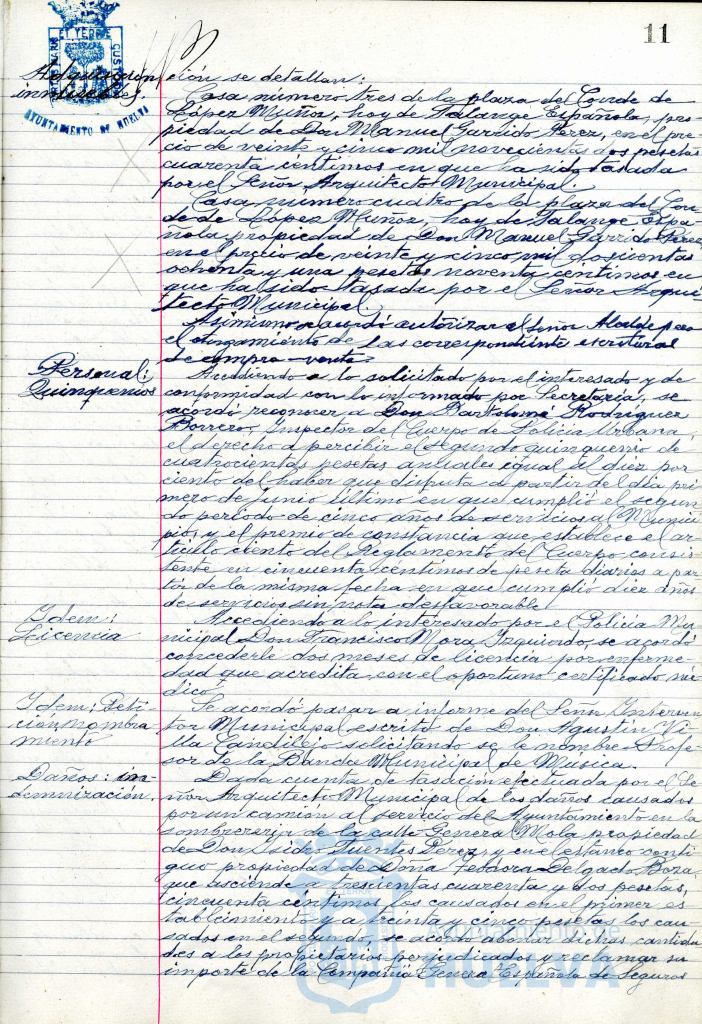 11
AYUNTAMIENTO DE HUELVA
Adquisición
inmuebles.
ción se detallan:
Casa número tres de la plaza del Conde de
López Muñoz, hoy de Falange Española, pro-
piedad de Don Manuel Garrido Perez, en el pre-
cio de veinte y cinco mil novecientas dos pesetas
cuarenta céntimos en que ha sido tasada
por el Señor Arquitecto Municipal.
Casa numero cuatro de la plaza del Con-
de de López Muñoz, hoy de Falange Espa-
ñola propiedad de Don Manuel Garrido Perez
en el precio de veinte y cinco mil doscientas
ochenta y una pesetas noventa centimos en
que ha sido tasada por el Señor Arqui-
tecto Municipal
Asimismo se acordó autorizar al Señor Alcalde para
el otorgamiento de las correspondiente escrituras
de compra-venta
Personal:
Quinquenios
Accediendo a lo solicitado por el interesado y de
conformidad con lo informado por Secretaría, se
acordó reconocer a Don Bartolomé Rodriguez
Borrero, Inspector del Cuerpo de Policía Urbana,
el derecho a percibir el segundo quinquenio de
cuatrocientas pesetas anuales igual al diez por
ciento del haber que disfruta a partir del día pri-
mero de junio último en que cumplió el segun-
do período de cinco años de servicios al Munici-
pio, y el premio de constancia que establece el ar-
tículo ciento del Reglamento del Cuerpo consis-
tente en cincuenta céntimos de peseta diarios a par-
tir de la misma fecha en que cumplió diez años
de servicios sin nota desfavorable
Idem:
Licencia
Accediendo a lo interesado por el Policía Mu-
nicipal Don Francisco Mora Izquierdo, se acordó
concederle dos meses de licencia por enferme-
dad que acredita con el oportuno certificado mé-
dico
Idem: Peti-
ción nombra
miento
Se acordó pasar a informe del Señor Interven-
tor Municipal escrito de Don Agustin Vi-
lla Candilejo solicitando se le nombre Profe-
sor de la Banda Municipal de Musica.
Daños: in-
demnización.
Dada cuenta de tasación efectuada por el Se-
ñor Arquitecto Municipal de los daños causados
por un camión al servicio del Ayuntamiento en la
sombrerería de la calle General Mola propiedad
de Don Isidro Fuentes Perez, y en el estanco conti-
guo propiedad de Doña Teodora Delgado Boza,
que asciende a trescientas cuarenta y dos pesetas,
cincuenta céntimos los causados en el primer es-
tablcimiento y a treinta y cinco pesetas los cau-
sados en el segundo, se acordo abonar dichas cantida-
des a los propietarios perjudicados y reclamar su
importe de la Compañía General Española de Seguros
Ayuntamiento de
HUELVA